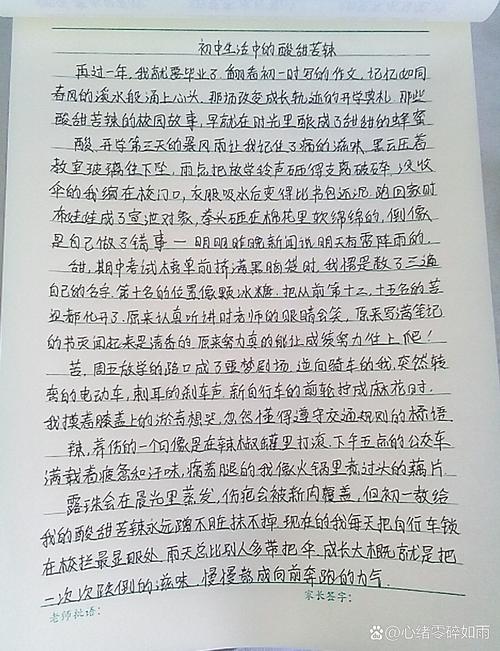 初中生活中的酸甜苦辣
再过一年，我就要毕业了。翻看初一时写的作文，记忆如同
春风的溪水般涌上心头。那场改变成长轨迹的开学典礼，那些
酸甜苦辣的校园故事，早就在时光里酿成了甜甜的蜂蜜
酸，开学第三天的暴风雨让我记住了痛的滋味。黑云压着
教室玻璃往下坠，雨点把放学铃声砸得支离破碎，没收
伞的我缩在校门口，衣服吸水后变得比书包还沉。跑回家时
布娃娃成了宣泄对象，拳头砸在棉花里软绵绵的，倒像
是自己做了错事－明明昨晚新闻说明天有雷阵雨的。
甜，期中考试榜单前挤满黑脑袋时，我愣是数了三遍
自己的名字。第十名的位置像颗冰糖，把从前第十三，十五名的苦
都化开了。原来认真听讲时老师的眼睛会笑，原来写满笔记
的书页闻起来是清香的，原来努力真的能让成绩努力往上爬！
苦，周五放学的路口成了噩梦剧场。逆向骑车的我，突然转
弯的电动车，刺耳的刹车声，新自行车的前轮拧成麻花时，
我摸着膝盖上的淤青想哭，忽然懂得遵守交通规则的标语
辣，养伤的一个月像是在辣椒罐里打滚。下午五点的公交车
满载着疲惫和汗味，瘸着腿的我像火锅里煮过头的藕片
露珠会在晨光里蒸发，伤疤会被新肉覆盖，但初一教给
我的酸甜苦辣永远蹭不脏抹不掉。现在的我每天把自行车锁
在校拦最显眼处，雨天总比别人多带把伞。成长大概就是把
一次次跌倒的滋味，慢慢都成向前奔跑的力气。
老师批语：
家长签字：
@心绪零碎如雨